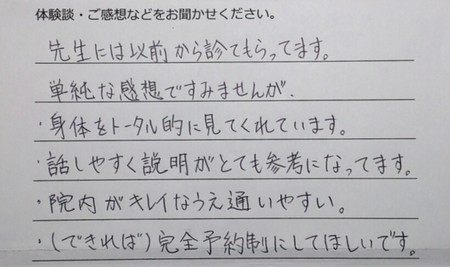 体験談・ご感想などをお聞かせください。
先生には以前から診てもらってます。
単純な感想ですみませんが、
・身体をトータル的に見てくれています。
・話しやすく説明がとても参考になってます。
・院内がキレイなうえ通いやすい。
・(できれば)完全予約制にしてほしいです。